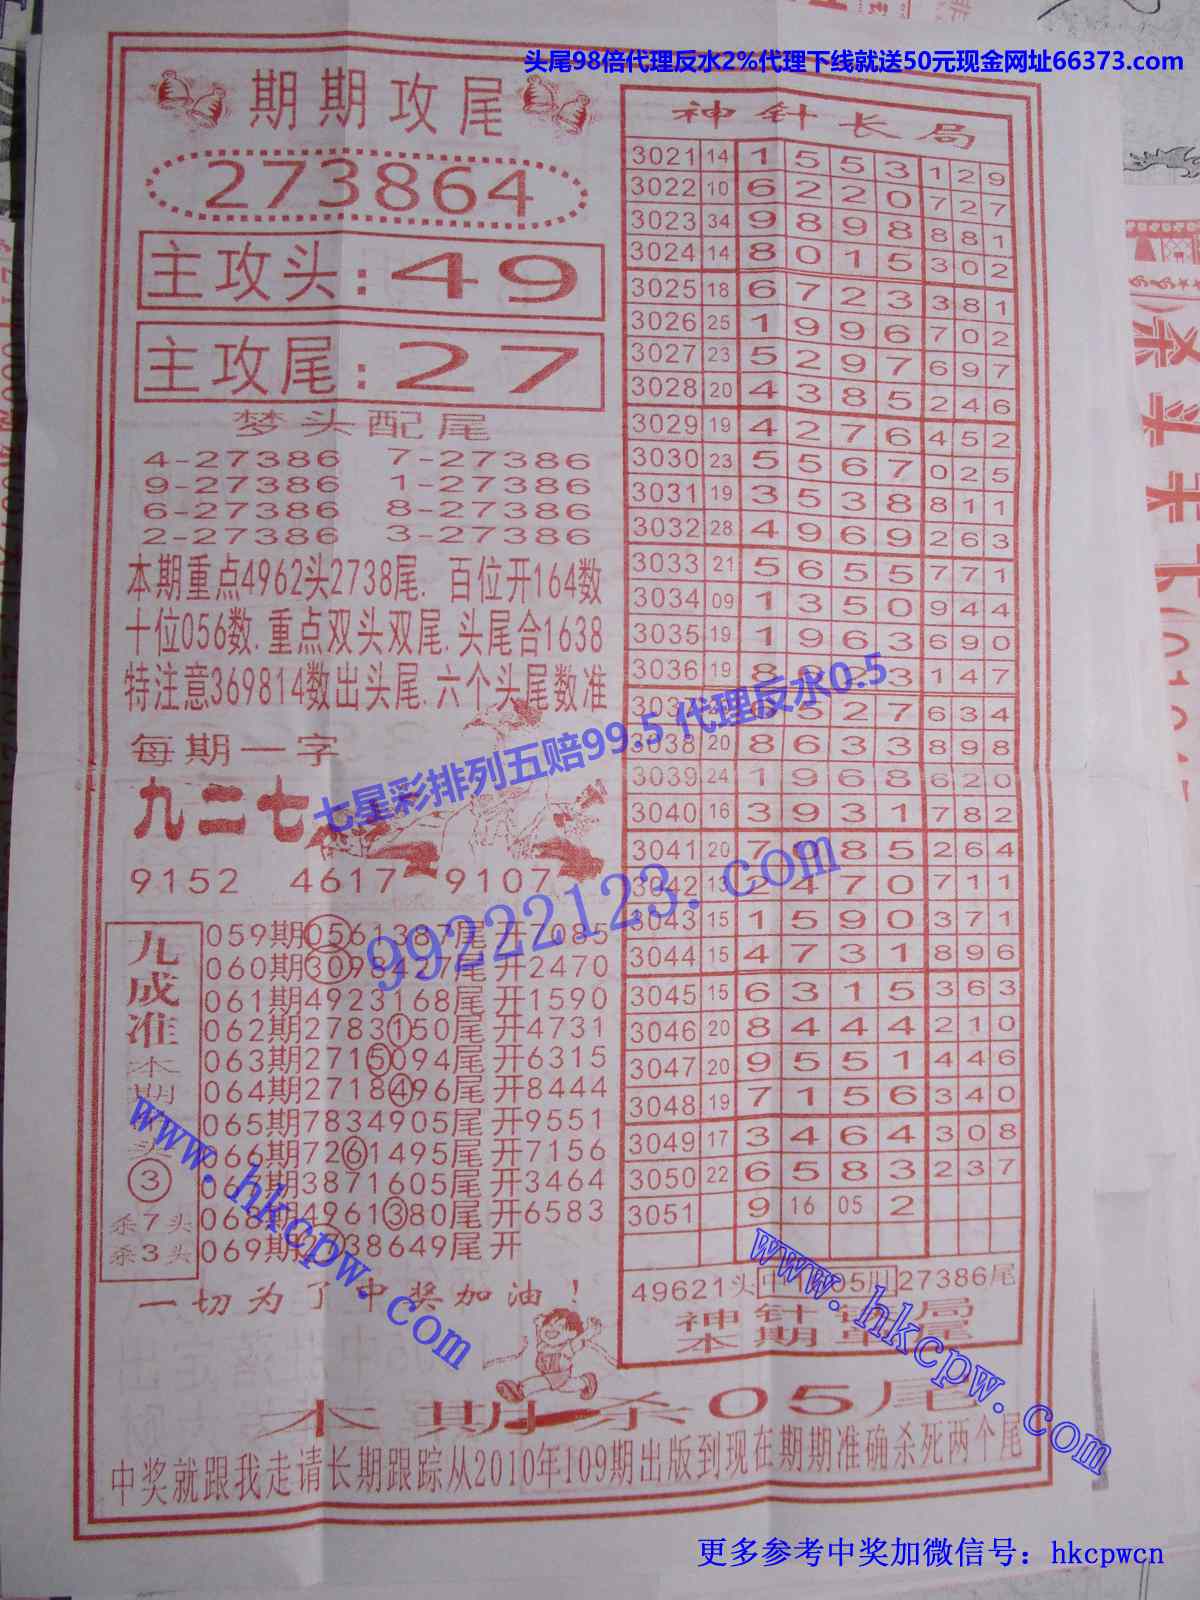 头尾98倍代理反水2%代理下线就送50元现金网址66373.com
期期攻尾
273864
主攻头:49
主攻尾:27
梦头配尾
4-27386 7-27386
9-27386 1-27386
6-27386 8-27386
2-27386 3-27386
本期重点4962头2738尾. 百位开164数
十位056数.重点双头双尾.头尾合1638
特注意369814数出头尾.六个头尾数准
每期一字
九二七
9152 4617 9107
九成准
本期
头
③
杀7头
杀3头
059期0561387尾开7085
060期3098427尾开2470
061期4923168尾开1590
062期2783①50尾开4731
063期271⑤094尾开6315
064期2718④96尾开8444
065期7834905尾开9551
066期72⑥1495尾开7156
067期3871605尾开3464
068期4961③80尾开6583
069期2738649尾开
一切为了中奖加油!
神针长局
3021 14 1 5 5 3 1 2 9
3022 10 6 2 2 0 7 2 7
3023 34 9 8 9 8 8 8 1
3024 14 8 0 1 5 3 0 2
3025 18 6 7 2 3 3 8 1
3026 25 1 9 9 6 7 0 2
3027 23 5 2 9 7 6 9 7
3028 20 4 3 8 5 2 4 6
3029 19 4 2 7 6 4 5 2
3030 23 5 5 6 7 0 2 5
3031 19 3 5 3 8 8 1 1
3032 28 4 9 6 9 2 6 3
3033 21 5 6 5 5 7 7 1
3034 09 1 3 5 0 9 4 4
3035 19 1 9 6 3 6 9 0
3036 19 8 2 3 1 4 7
303 6 5 2 7 6 3 4
3038 20 8 6 3 3 8 9 8
3039 24 1 9 6 8 6 2 0
3040 16 3 9 3 1 7 8 2
3041 20 7 8 5 2 6 4
3042 13 2 4 7 0 7 1 1
3043 15 1 5 9 0 3 7 1
3044 15 4 7 3 1 8 9 6
3045 15 6 3 1 5 3 6 3
3046 20 8 4 4 4 2 1 0
3047 20 9 5 5 1 4 4 6
3048 19 7 1 5 6 3 4 0
3049 17 3 4 6 4 3 0 8
3050 22 6 5 8 3 2 3 7
3051 9 16 05 2
49621头 中 05 27386尾
神针 局
本期 尾
本期杀05尾
中奖就跟我走请长期跟踪从2010年109期出版到现在期期准确杀死两个尾
七星彩排列五赔99.5 代理反水0.5
99222123.com
www.hkcpw.com
www.hkcpw.com
更多参考中奖加微信号：hkcpwcn